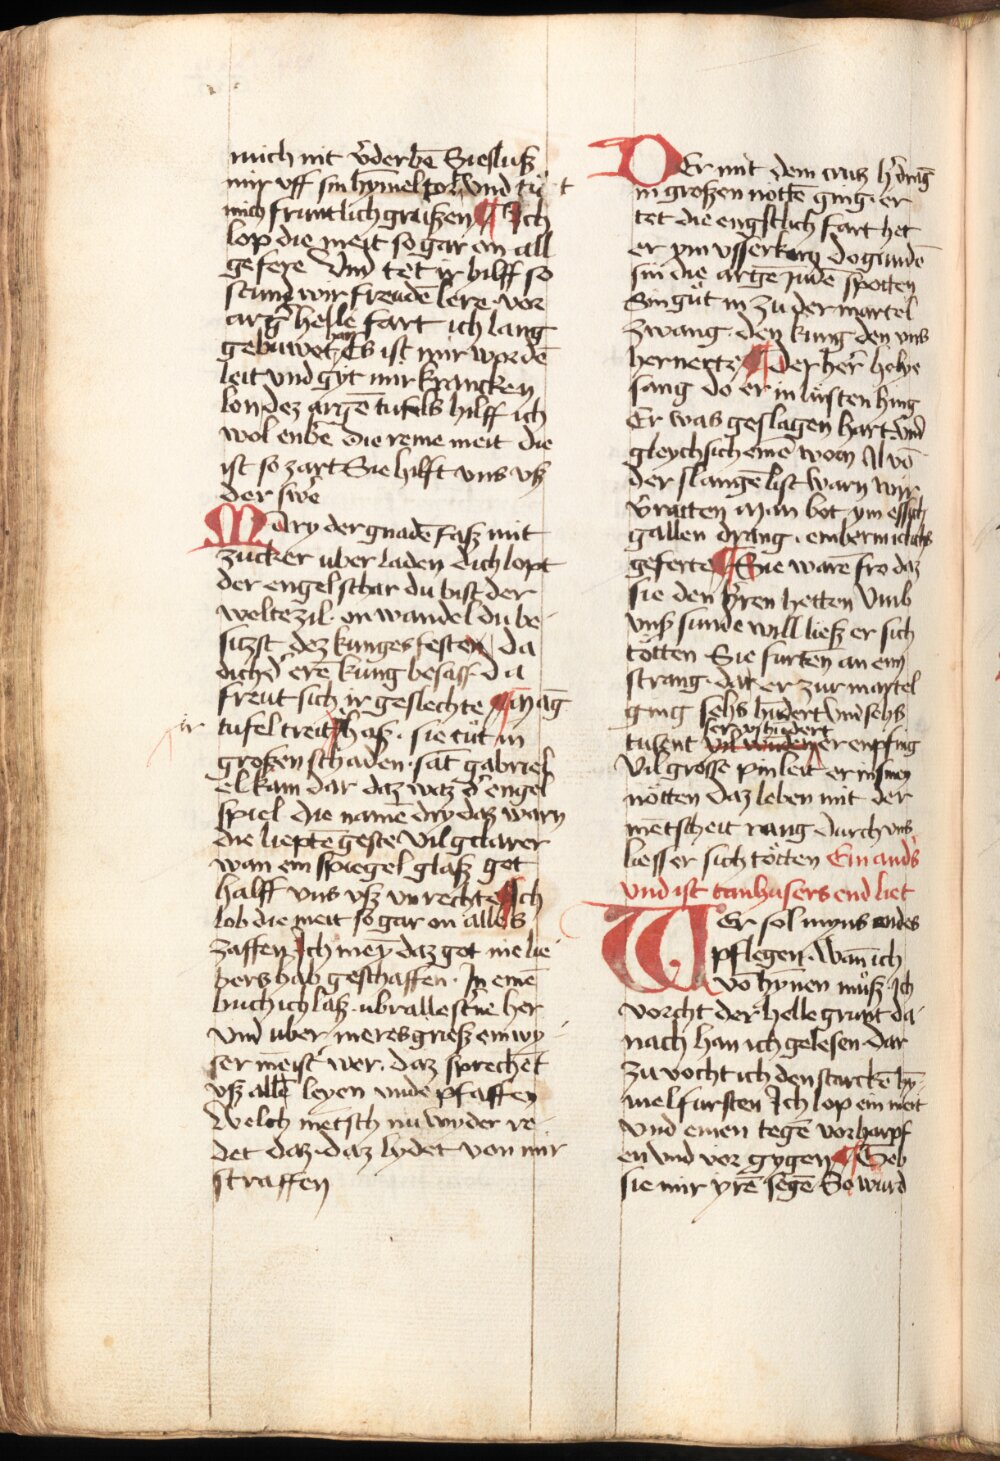 mich nit v̄derbē Sieslusz
mir vff sin hȳmel tor Vnd tu͛ t
mich fruntlich gruszen ¶ Ich
lop die meit so gar on all
gefere Vnd tet ir hilff so
stund wir freudē lere vor
arḡ helle fart ich lang
han
gebuwet Es ist mir wordē
leit vnd gyt mir krancken
lon dez argē tufels hilff ich
wol enbē die reine meit die
ist so zart Sie hilft vns vsz
der swē
MAry der gnadē fasz mit
zucker uber laden dich lopt
der engel schar du bist der
welte zil · on wandel du be
sizst dez kunges festen da
dich d͛ erē kung besasz · da
freut sich ir geslechte ¶ Māg
ir
tufel treit hasz · sie tüt in
groszen schaden · sāt gabriel
el kam dar daz waz d͛ engel
spiel die namē dry daz warn
die lieptē geste Vil clarer
wan ein spiegel glasz got
halff vns vsz vnrechte ¶ Ich
lob die meit so gar on alles
zaffen Ich mey daz got nie lie
bers hab geschaffen · In einē
buch ich lasz · vbralle st͛ne her
vnd uber meres griesz ein wy
ser meist͛ wer · daz sprechēt
vsz allē leyen vnde pfaffen
Welch mētsch nu wyder re
det daz · daz lydet von mir
straffen
DEr mit dem crutz h͛ drāg
in groszen nottē ging · er
tet die engstlich fart het
er ym vsserkorn do gundē
sin die argē Judē spotten
Sin gu͛t in zu der martel
zwang · den kung · den vns
hernerte ¶ Der her̄ helye
sang do er in lüften hing
Er was geslagen hart vnd
glych sich einē worm Al vō
der slangē list warn wir
v͛ratten Man bot ym essich
gallen drang ·
geferte ¶ Sie warē fro daz
sie den h͛ren hetten Vmb
vnsz sunde will liesz er sich
tötten Sie furtēn an eim
strang · daz er zur martel
ging sehs hūdert vnd sehs
ser vῡhundert
tusent vil wunden er enpfing
Vil grosse pin leit er in sinen
nötten daz leben mit der
mētscheit rang durch vns
liesser sich tötten Ein and͛s
vnd ist tanhusers end liet
WEr sol myns endes
pflegen · Wan̄ ich
vō hȳnen mu͛sz · Ich
vorcht der helle grunt da
nach han ich gelesen · Dar
zu vocht ich den starckē hȳ
mel fursten Ich lop ein meit
vnd einen tegē vor harpf
en vnd vor gygen ¶ Geb
sie mir yrē segē So wurd